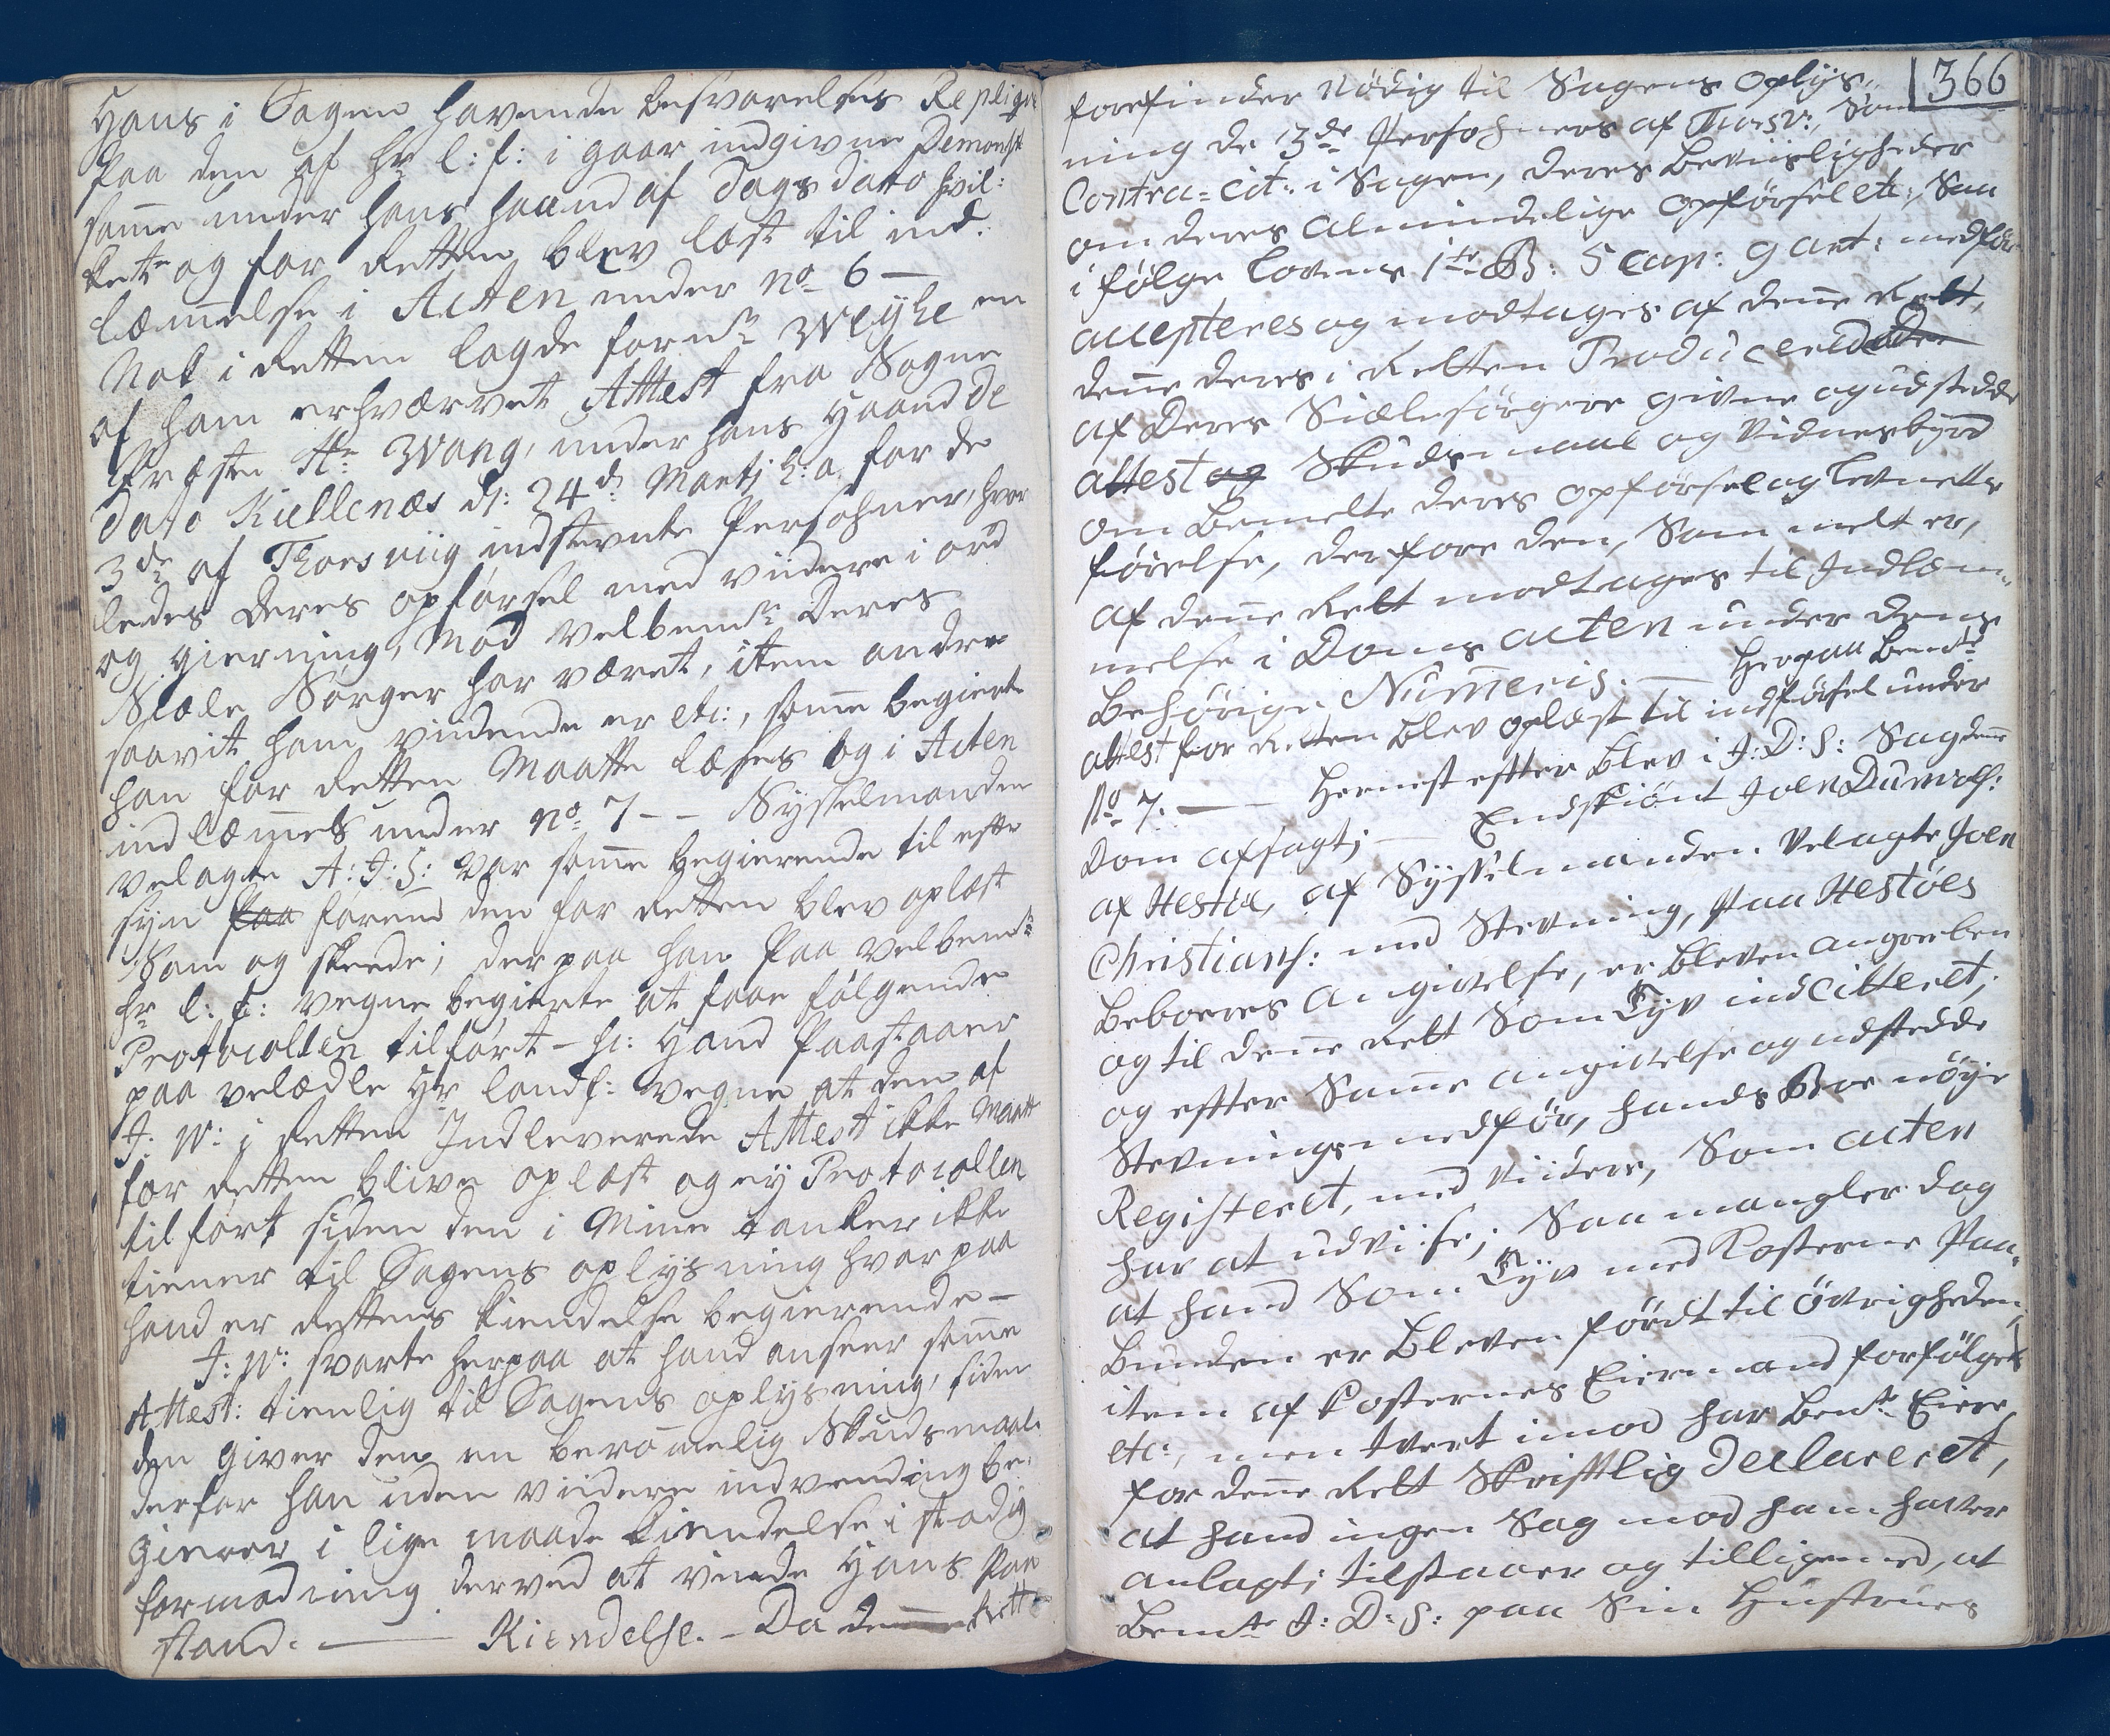 Hans i Sagen havende besvarelses Repliqve
Paa den af hr. l: f: i gaar indgivne Demonst
samme under hans haand af Dags datto hvil:
ket og for Retten blev læst til ind.
læmmelse i Acten under No 6 —
Nok i Retten lagde fornte Weyhe en
af ham erhværvet Attest fra Sogne
Præsten Hr Wang, under hans Haand de
Dato Kiellenæs d: 24de Martj h: a. for de
3de af Thorsviig indstevnte Persohner, hvor
ledes Deres opførsel med viidere i ord
og gierning, Mod Velbemte Deres
Siæle Sørger har været, item andre
saavit ham viidende er etc:, somme begierte
han for Retten Maatte læses og i Acten
indlæmmes under No 7 — — Sysselmanden
velagte A: J: S: var somme begierende til efter
syn paa førend den for Retten blev oplæst
Som og skeede; der paa han paa velbemte
hr l: f: vegne begierte at faae følgende
Protocollen tilført — sc: Hand Paastaaer
paa velædle Hr landf: vegne at den af
J: W: i Retten Indleverede Attest ikke Maatte
for Retten blive oplæst og ey Protocollen
tilført siden den i Mine tanker ikke
tiener til Sagens oplysning hvor paa
hand er Rettens kiendelse begierende —
J: W: svarte herpaa at hand anseer somme
Attest: tienlig til Sagens oplysning, siden
den giver dem en berømmelig Skudsmaal
derfor han uden viidere indvending be-
gierer i lige maade kiendelse i stadig
formodning derved at vinde Hans Paa
stand. — Kiendelse. — Da denne Rett
366
forefinder Nødig til Sagens oplys-
ning de 3de Persohners af Thorsv:, Som
Contra=cit: i Sagen, deres Beviisligheder
om deres almindelige opførsel etc:, Saa
i følge Lovens 1te B: 5 Cap: 9 art: medfør
accepteres og modtages af denne Rett,
denne deres i Retten Producered
af Deres Siælesørgere givne og udstedde
attest og Skudsmaal og Vidnesbyrd
om Bemelte deres opførsel og levnets
førelse, derfore den, Som melt er,
af denne Rett modtages til Indlæm-
melse i Doms acten under dens
Behørige Numeris. — Herpaa Bemte
attest for Retten blev oplæst til indførsel under
No 7. — Hernest efter blev i J: D: S: Sag denne
Dom afsagt; — Endskiønt Joen Dumas:
af Hestøe, af Sysselmanden Velagte Joen
Christians: med Stevning, Paa Hestøes
Beboeres angivelse, er bleven angreben
og til denne Rett Som Tyv indcitteret,
og efter Samme angivelse og udstedde
Stevnings medfør, hands Boe nøye
Registeret, med Viidere, Som acten
har at udviise; Saa mangler dog
at hand Som Tyv med Kosterne Paa-
bunden er Bleven fördt til Övrigheden,
item af kosternes Eiermand forfølget
etc:, men tvert imod har Bemte Eiere
for denne Rett Skriftlig Declareret,
at hand ingen Sag mod ham haver
anlagt; tilstaaer og tilligemed, at
Bemte J: D: S: paa Sin Hustrues